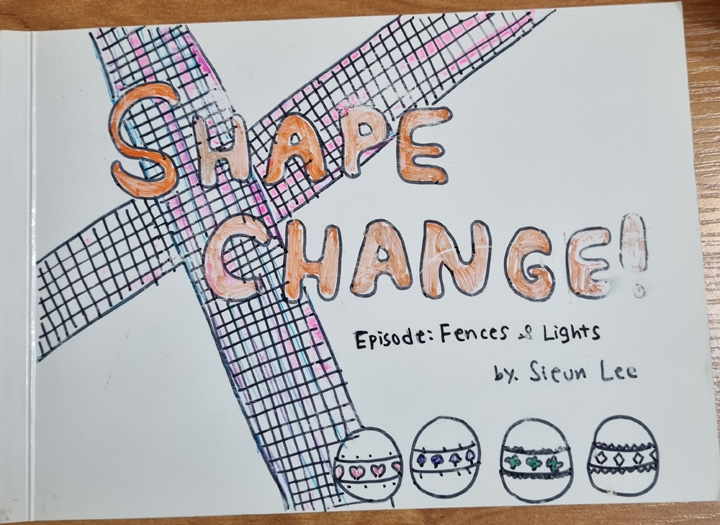 SHAPE
CHANGE!
Episode: Fences & Lights
by. Sieun Lee